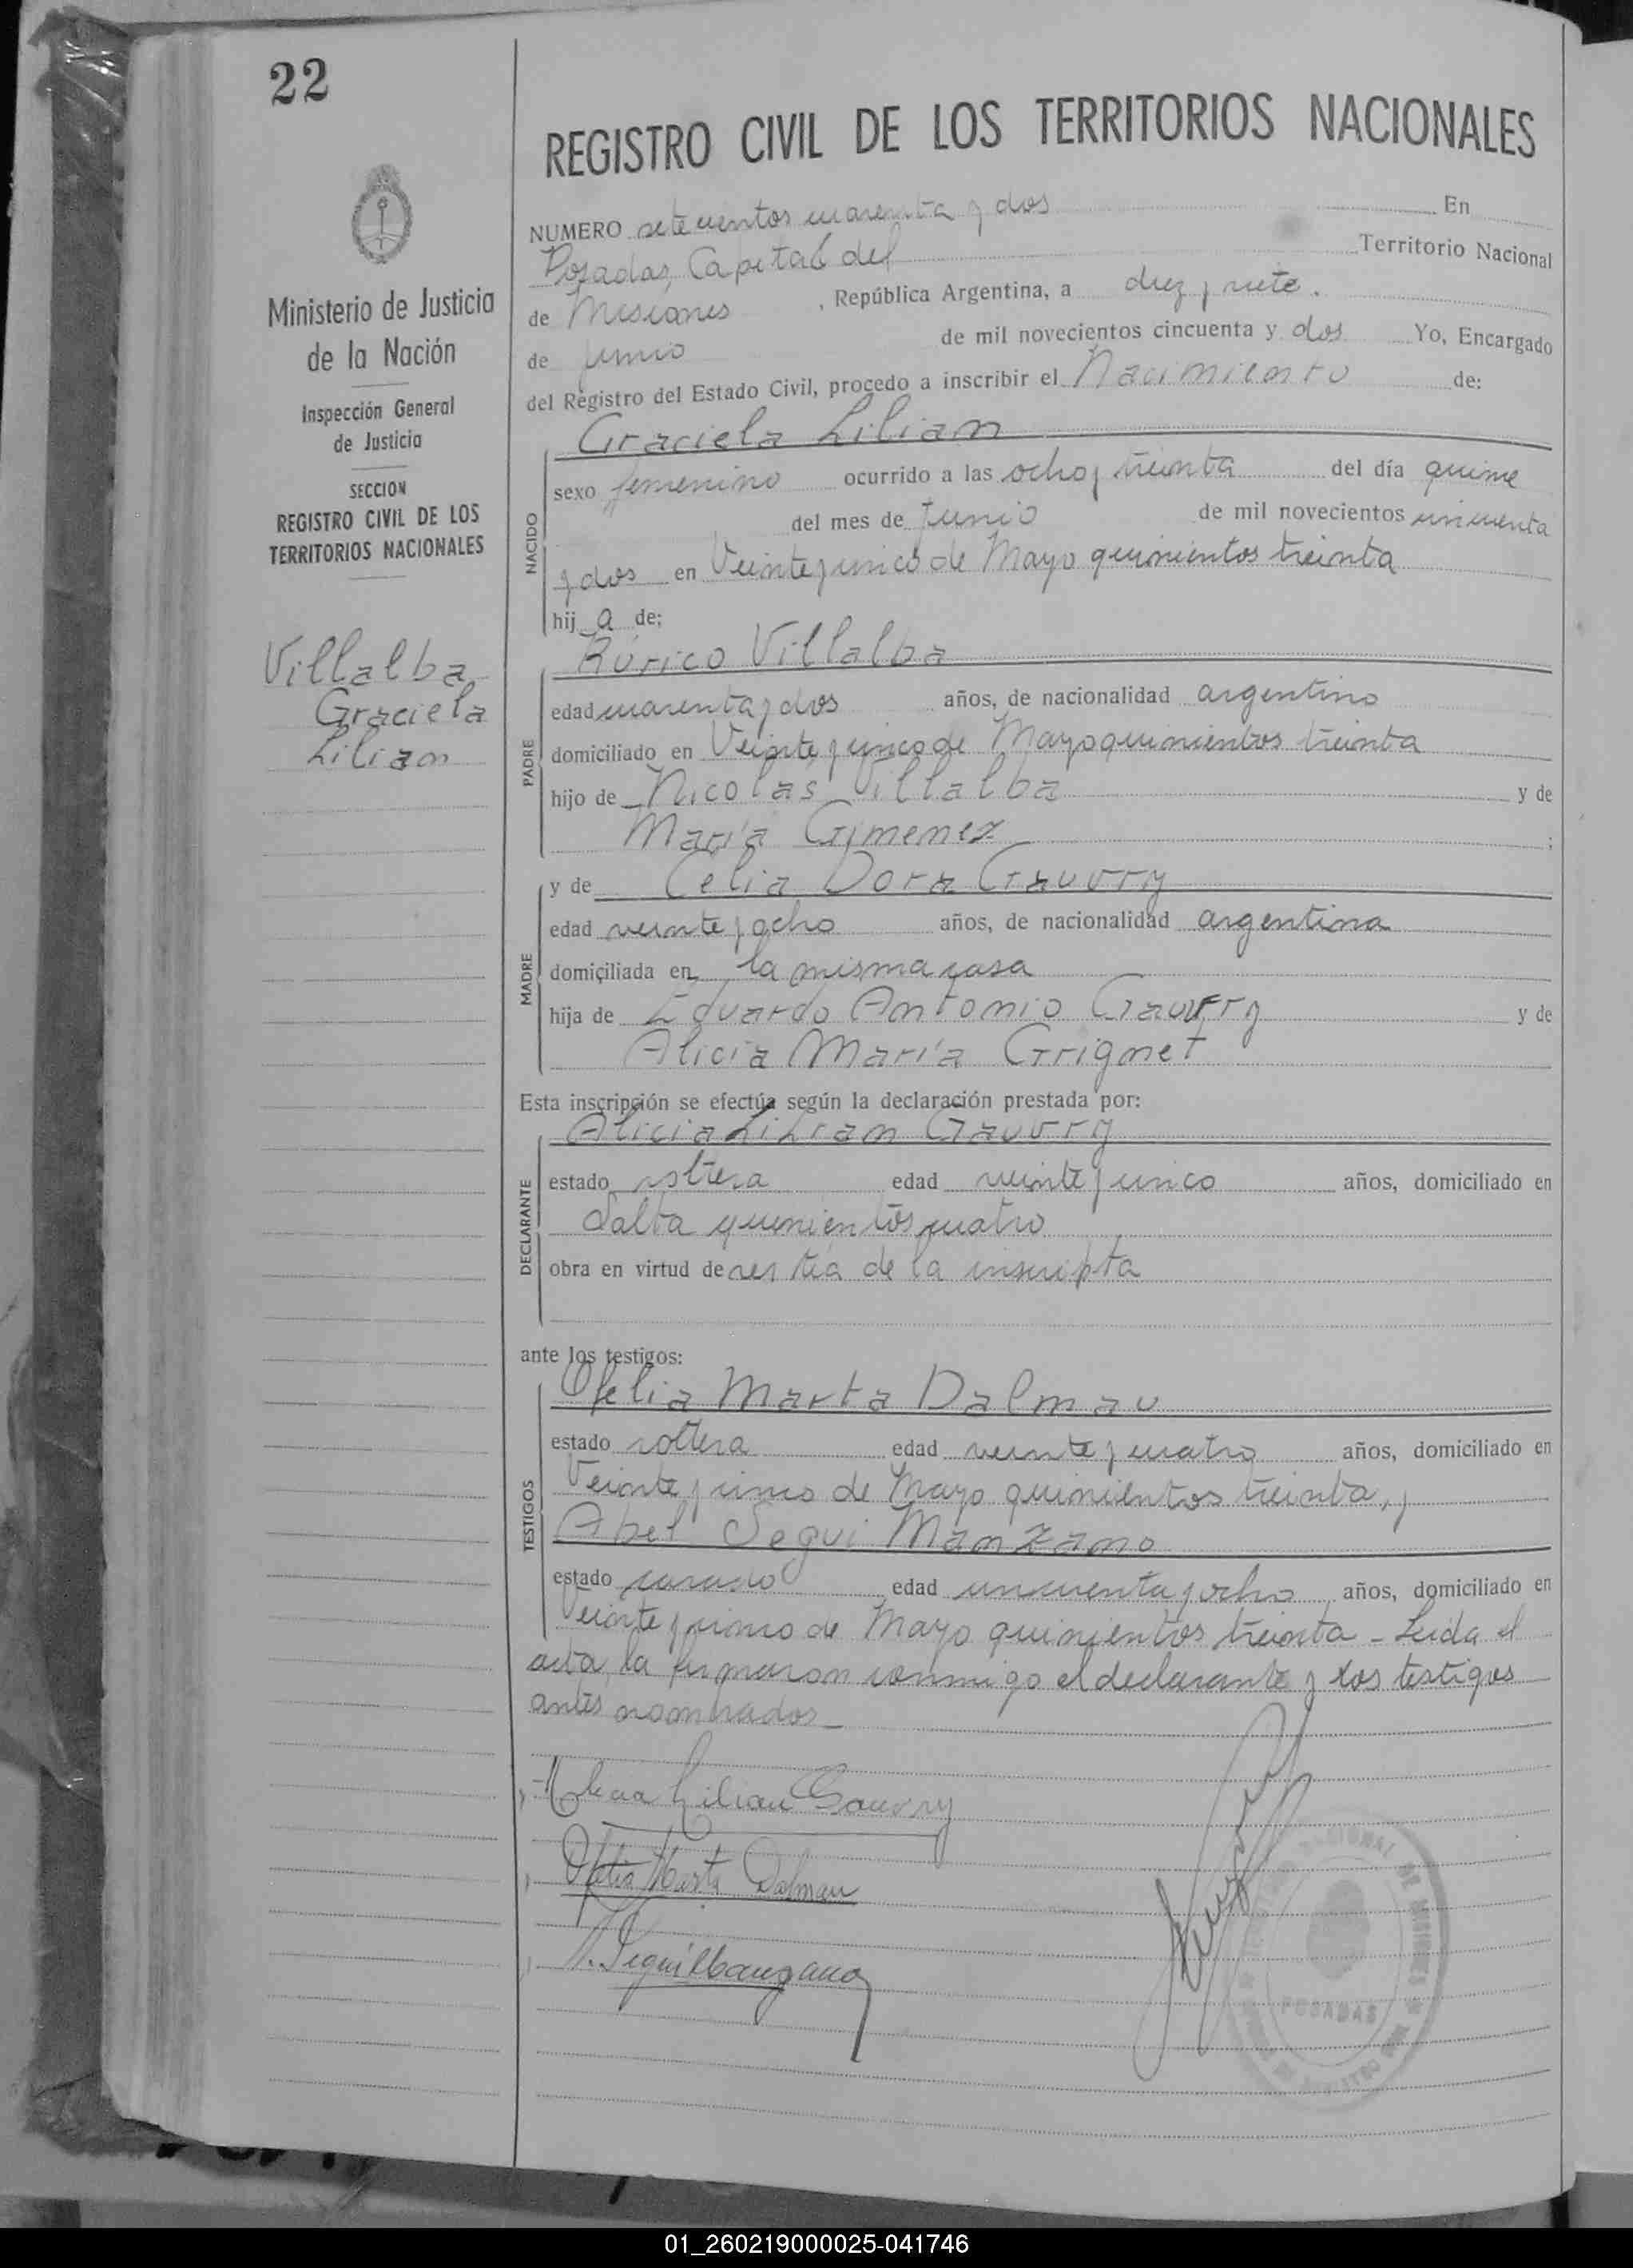 22
REGISTRO CIVIL DE LOS TERRITORIOS NACIONALES
Ministerio de Justicia
de la Nación
Inspección General
de Justicia
SECCION
REGISTRO CIVIL DE LOS
TERRITORIOS NACIONALES
Villalba
Graciela
Lilian
NUMERO setecientos cuarenta y dos En
Posadas, Capital del Territorio Nacional
de Misiones, República Argentina, a diez y siete.
de Junio de mil novecientos cincuenta y dos Yo, Encargado
del Registro del Estado Civil, procedo a inscribir el Nacimiento de:
NACIDO
Graciela Lilian
sexo femenino ocurrido a las ocho y treinta del día quince
del mes de Junio de mil novecientos cincuenta
y dos en Veinte y cinco de Mayo quinientos treinta
hij a de;
PADRE
Rúrico Villalba
edad cuarenta y dos años, de nacionalidad argentino
domiciliado en Veinte y cinco de Mayo quinientos treinta
hijo de Nicolás Villalba y de
María Gimenez ;
MADRE
y de Celia Dora Gauvry
edad veinte y ocho años, de nacionalidad argentina
domiciliada en la misma casa
hija de Eduardo Antonio Gauvry y de
Alicia María Grignet
Esta inscripción se efectúa según la declaración prestada por:
DECLARANTE
Alicia Lilian Gauvry
estado soltera edad veinte y cinco años, domiciliado en
Salta quinientos cuatro
obra en virtud de ser tía de la inscripta
ante los testigos:
TESTIGOS
Ofelia Marta Dalmau
estado soltera edad veinte y cuatro años, domiciliado en
Veinte y cinco de Mayo quinientos treinta, y
Abel Segui Manzano
estado casado edad cincuenta y ocho años, domiciliado en
Veinte y cinco de Mayo quinientos treinta - Leida el
acta, la firmaron conmigo el declarante y los testigos
antes nombrados_
Alicia Lilian Gauvry
Ofelia Marta Dalmau
A. Segui Manzano
NACIONAL DE MISIONES
POSADAS
01_260219000025-041746